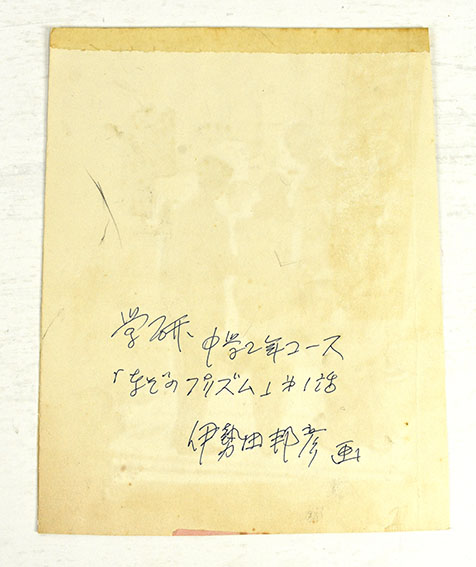 学研、中学2年コース
「なぞのプリズム」#1話
伊勢田邦彦 画